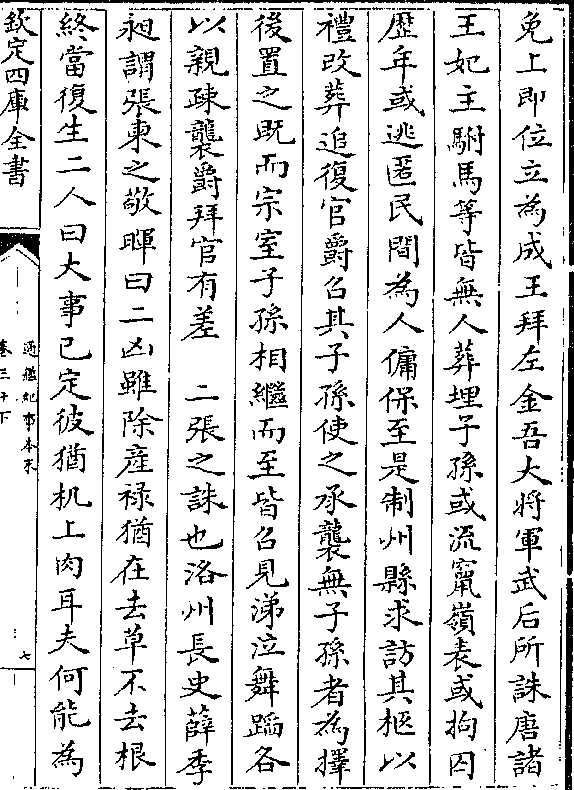 免上即位立為成王拜左金吾大將軍武后所誅唐諸
王妃主駙馬等皆無人葬埋子孫或流竄嶺表或拘囚
歴年或逃匿民間為人傭保至是制州縣求訪其柩以
禮改葬追復官爵召其子孫使之承襲無子孫者為擇
後置之既而宗室子孫相繼而至皆召見涕泣舞蹈各
以親疎襲爵拜官有差　二張之誅也洛州長史薛季
昶謂張柬之敬暉曰二凶雖除産祿猶在去草不去根
終當復生二人曰大事已定彼猶机上肉耳夫何能為
欽定四庫全書
通鑑紀事本末
卷三十下
七